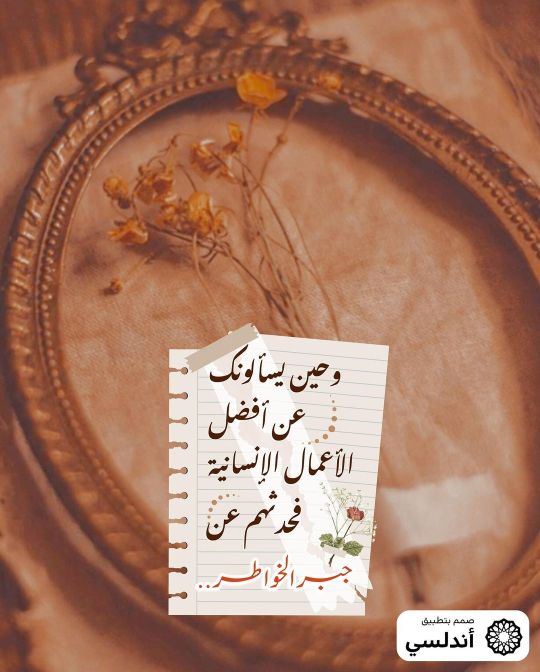 وحين يسألونك
عن أفضل
الأعمال الإنسانية
فحدثهم عن
جبر الخواطر..
صمم بتطبيق
أندلسي